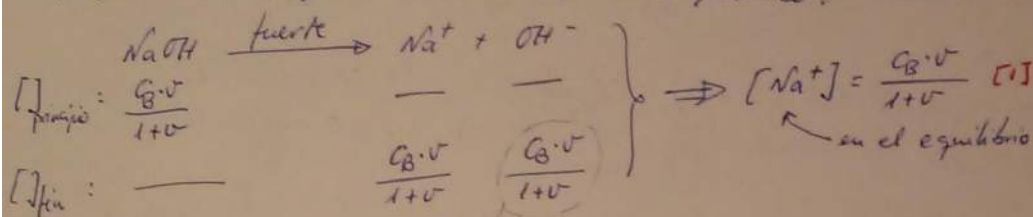 NaOH fuerte → Na⁺ + OH⁻
[ ]principio : C_B·v / 1+v — —
[ ]fin : — C_B·v / 1+v C_B·v / 1+v
⇒ [Na⁺] = C_B·v / 1+v [1]
en el equilibrio